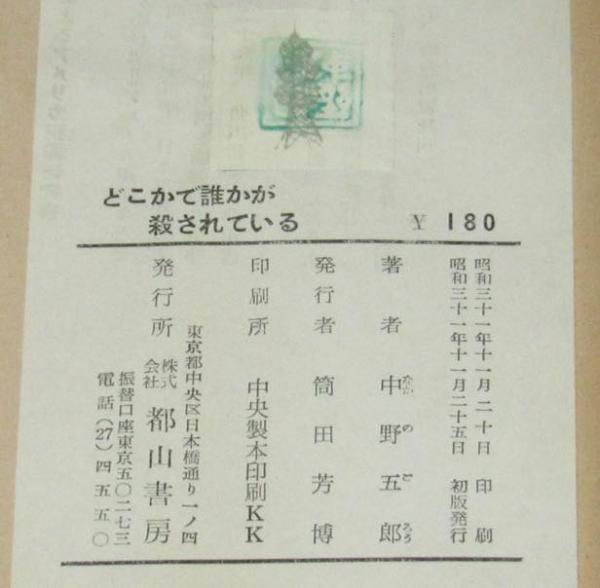 どこかで誰かが
殺されている
￥ 180
昭和三十一年十一月二十日 印刷
昭和三十一年十一月二十五日 初版発行
著者 中野五郎
なか の ご ろう
発行者 筒田芳博
印刷所 中央製本印刷KK
東京都中央区日本橋通り一ノ四
発行所 株式会社 都山書房
振替口座東京五〇二七三
電話(27)四五五〇